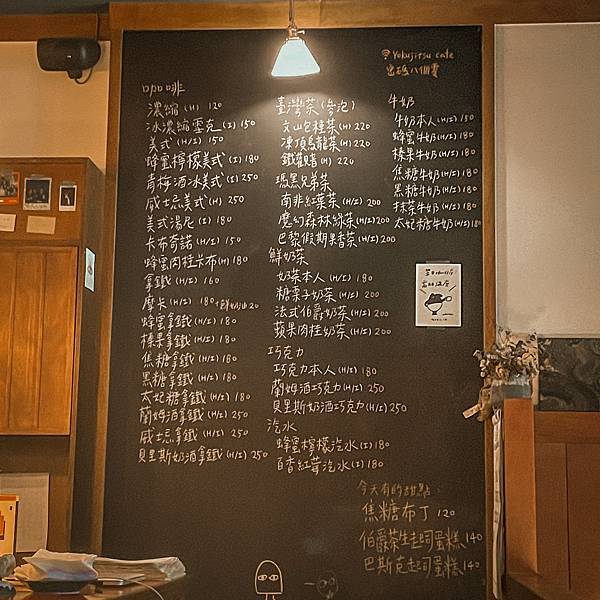 咖啡
濃縮 (H) 120
冰濃縮雪克 (I) 150
美式 (H/I) 150
蜂蜜檸檬美式 (I) 180
青梅酒冰美式 (I) 250
威士忌美式 (H) 250
美式湯尼 (I) 180
卡布奇諾 (H/I) 150
蜂蜜肉桂卡布 (H) 180
拿鐵 (H/I) 160
摩卡 (H/I) 180 +鮮奶油20
蜂蜜拿鐵 (H/I) 180
榛果拿鐵 (H/I) 180
焦糖拿鐵 (H/I) 180
黑糖拿鐵 (H/I) 180
太妃糖拿鐵 (H/I) 180
蘭姆酒拿鐵 (H/I) 250
威士忌拿鐵 (H/I) 250
貝里斯奶酒拿鐵 (H/I) 250
臺灣茶
文山包種茶 (H) 220
凍頂烏龍茶 (H) 220
(H) 220
瑪黑兄弟茶
南非紅葉茶 (H/I) 200
魔幻森林綠茶 (H/I) 200
巴黎假期果香茶 (H/I) 200
鮮奶茶
奶茶本人 (H/I) 180
糖栗子奶茶 (H/I) 200
法式伯爵奶茶 (H/I) 200
蘋果肉桂奶茶 (H/I) 200
巧克力
巧克力本人 (H/I) 180
蘭姆酒巧克力 (H/I) 250
貝里斯奶酒巧克力 (H/I) 250
汽水
蜂蜜檸檬汽水 (I) 180
百香紅莓汽水 (I) 180
Yokujitsu cafe
密碼八個零
牛奶
牛奶本人 (H/I) 150
蜂蜜牛奶 (H/I) 180
榛果牛奶 (H/I) 180
焦糖牛奶 (H/I) 180
黑糖牛奶 (H/I) 180
抹茶牛奶 (H/I) 180
太妃糖牛奶 (H/I) 180
今天有的甜點:
焦糖布丁 120
伯爵茶生起司蛋糕 140
巴斯克起司蛋糕 140